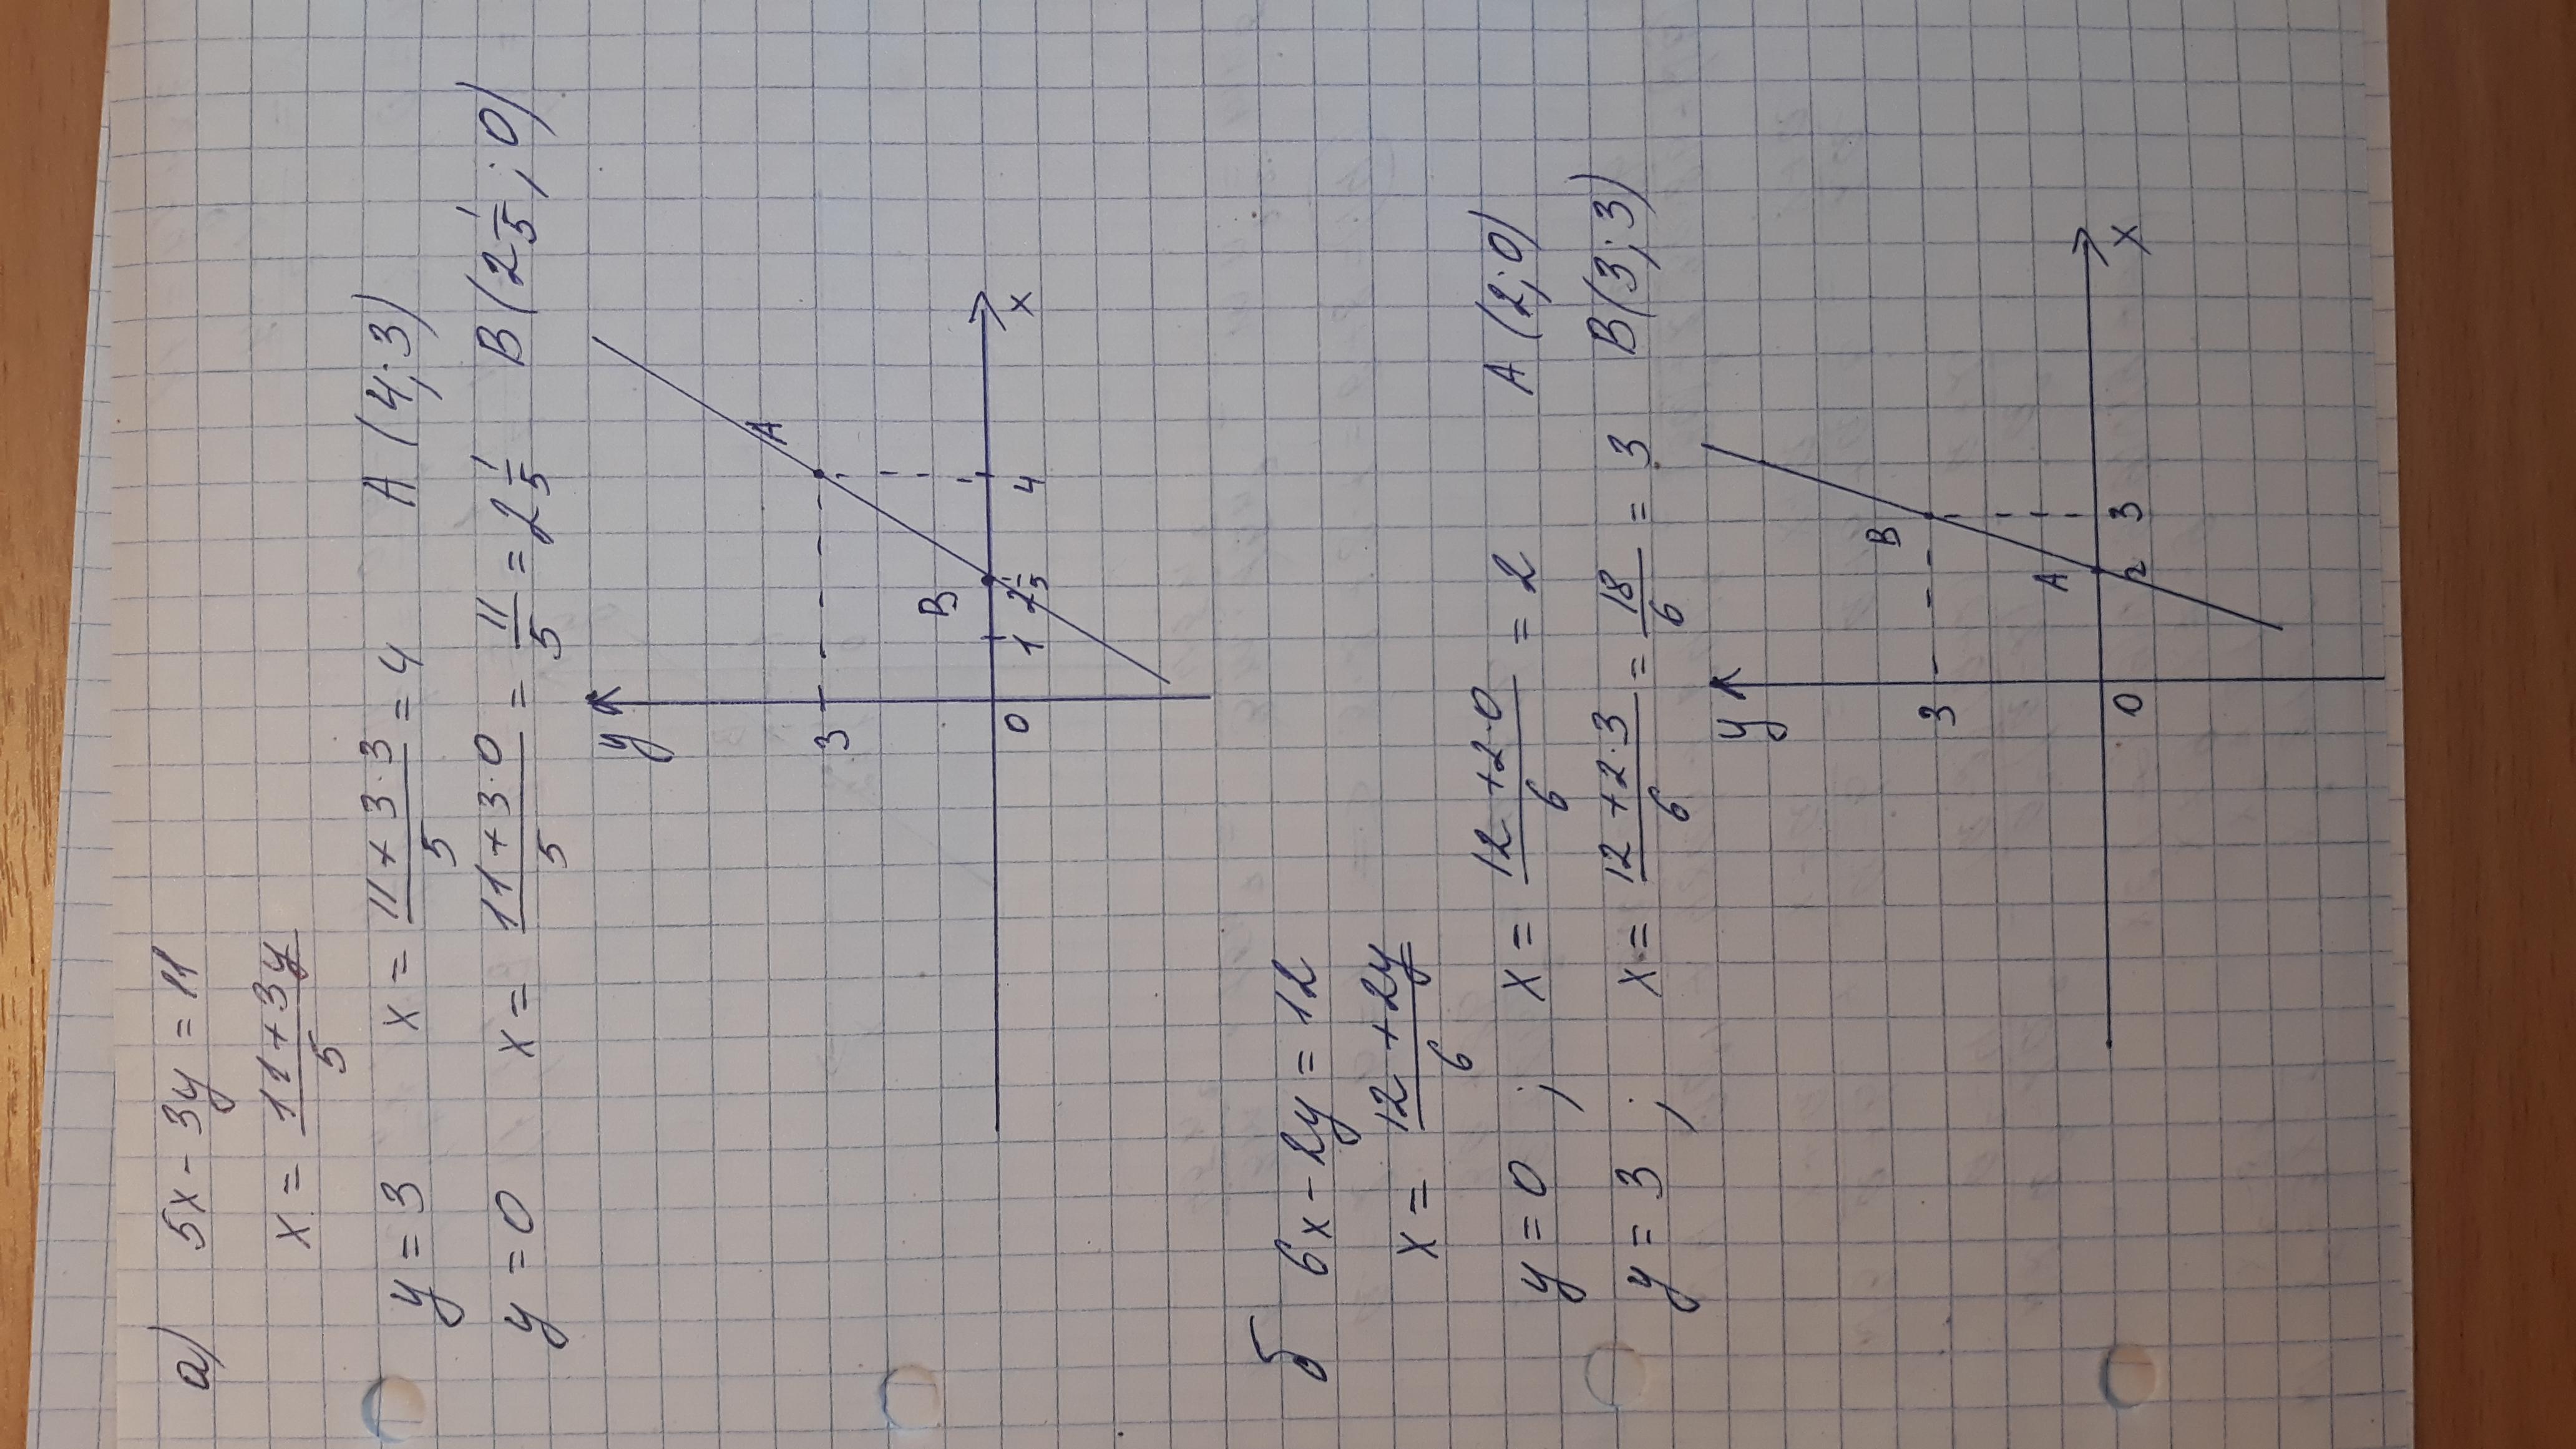 а) 5x - 3y = 11
x = (11 + 3y)/5
y = 3 x = (11 + 3·3)/5 = 4 A (4; 3)
y = 0 x = (11 + 3·0)/5 = 11/5 = 2 1/5 B (2 1/5; 0)
y
A
3
B
0 1 2 1/5 4 x
б 6x - 2y = 12
x = (12 + 2y)/6
y = 0 ; x = (12 + 2·0)/6 = 2 A (2; 0)
y = 3 ; x = (12 + 2·3)/6 = 18/6 = 3 B (3; 3)
y
B
3
A
0 2 3 x